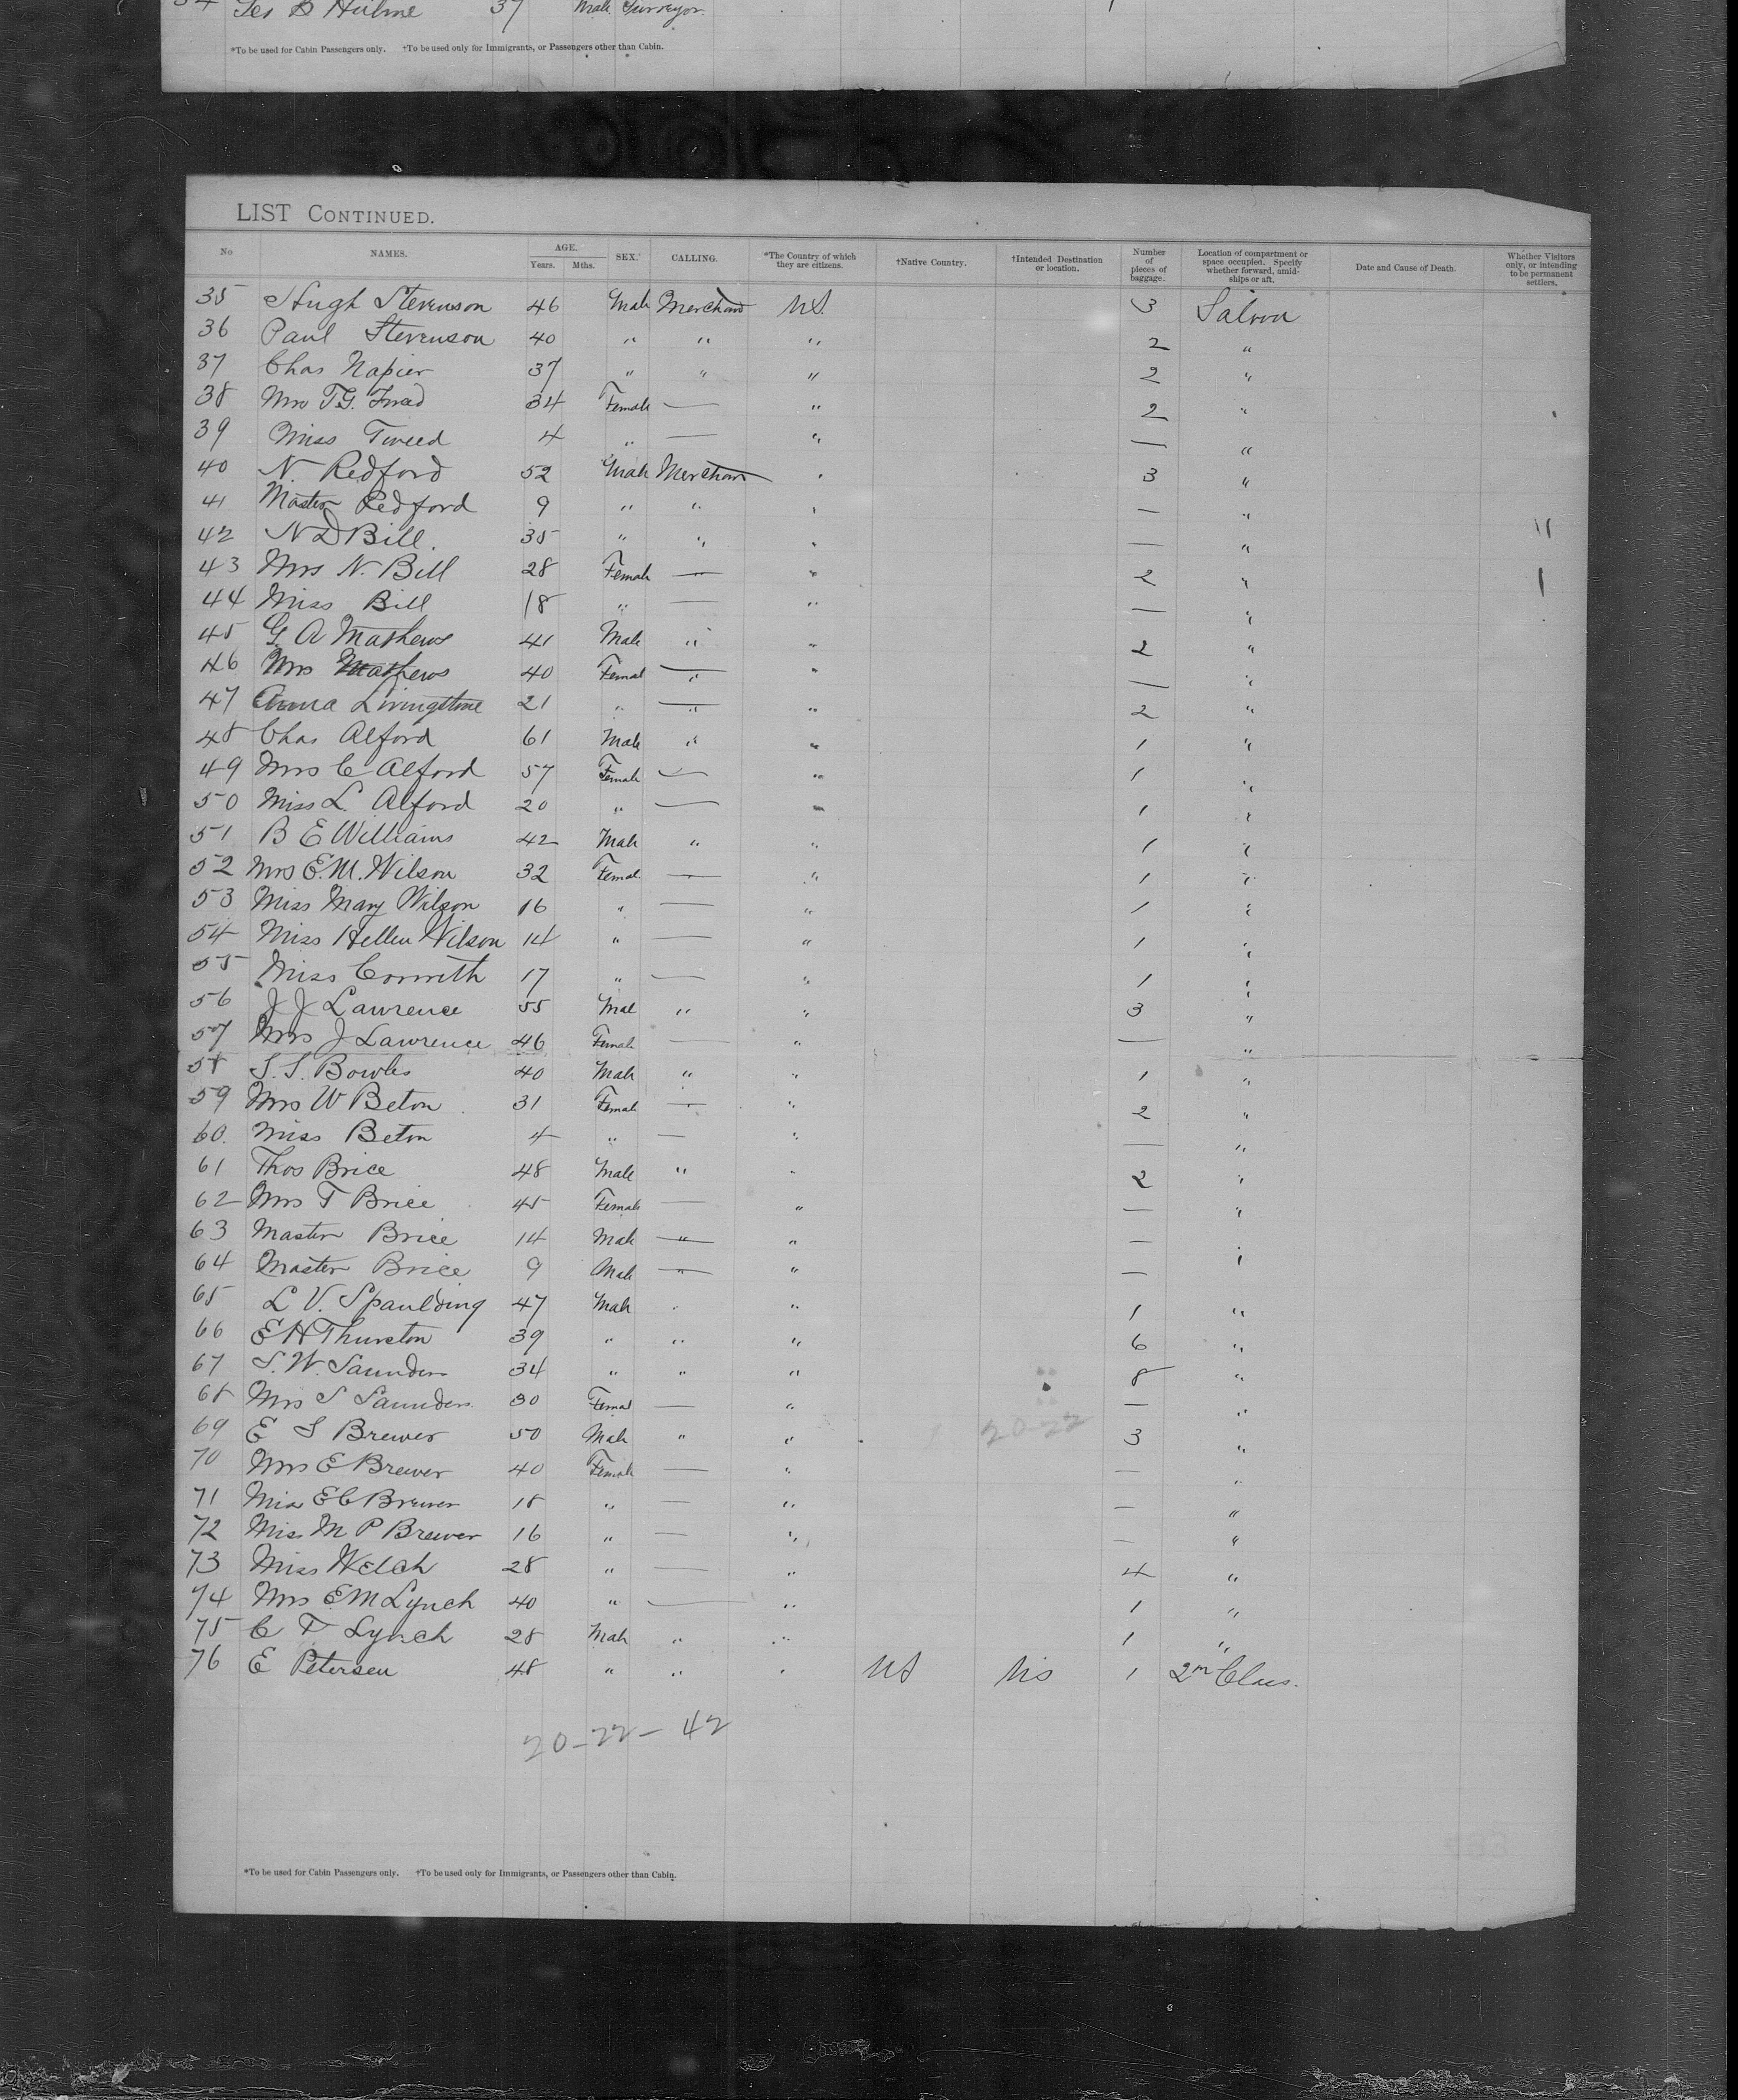 34 Geo B Hulme 37 Male Surveyor
*To be used for Cabin Passengers only. †To be used only for Immigrants, or Passengers other than Cabin.
LIST CONTINUED.
No NAMES. AGE. Years. Mths. SEX. CALLING. *The Country of which they are citizens. †Native Country. †Intended Destination or location. Number of pieces of baggage. Location of compartment or space occupied. Specify whether forward, amidships or aft. Date and Cause of Death. Whether Visitors only, or intending to be permanent settlers.
35 Hugh Stevenson 46 Male Merchant US. 3 Saloon
36 Paul Stevenson 40 " " " 2 "
37 Chas Napier 37 " " " 2 "
38 Mrs T.G. 34 Female — " 2 "
39 Miss Tweed 4 " — " — "
40 N Redford 52 Male Merchant " 3 "
41 Master Redford 9 " " " — "
42 N D Bill. 35 " " " — "
43 Mrs N. Bill 28 Female — " 2 "
44 Miss Bill 18 " — " — "
45 G A Mathews 41 Male " " 2 "
46 Mrs Mathews 40 Femal — " — "
47 Anna Livingstone 21 " — " 2 "
48 Chas Alford 61 Male " " 1 "
49 Mrs C Alford 57 Female — " 1 "
50 Miss L. Alford 20 " — " 1 "
51 B E Williams 42 Male " " 1 "
52 Mrs E.M. Wilson 32 Femal — " 1 "
53 Miss Mary Wilson 16 " — " 1 "
54 Miss Hellen Wilson 14 " — " 1 "
55 Miss Corwith 17 " — " 1 "
56 J J Lawrence 55 Mal " " 3 "
57 Mrs J Lawrence 46 Female — " — "
58 S.S. Bowles 40 Male " " 1 "
59 Mrs W Beton 31 Female — " 2 "
60. Miss Beton 4 " — " — "
61 Thos Brice 48 Male " " 2 "
62 Mrs T Brice 45 Female — " — "
63 Master Brice 14 Male — " — "
64 Master Brice 9 Male — " — "
65 L V. Spaulding 47 Male " " 1 "
66 E H Thurston 39 " " " 6 "
67 S. W. Saunders 34 " " " 8 "
68 Mrs S Saunders 30 Femal — " — "
69 E S Brewer 50 Male " " 20-22 3 "
70 Mrs E Brewer 40 Female — " — "
71 Miss E C Brewer 18 " — " — "
72 Miss M P Brewer 16 " — " — "
73 Miss Welch 28 " — " 4 "
74 Mrs E M Lynch 40 " — " 1 "
75 C F Lynch 28 Male " " 1 "
76 E Petersen 48 " " " US US 1 2nd Class.
20-22-42
*To be used for Cabin Passengers only. †To be used only for Immigrants, or Passengers other than Cabin.